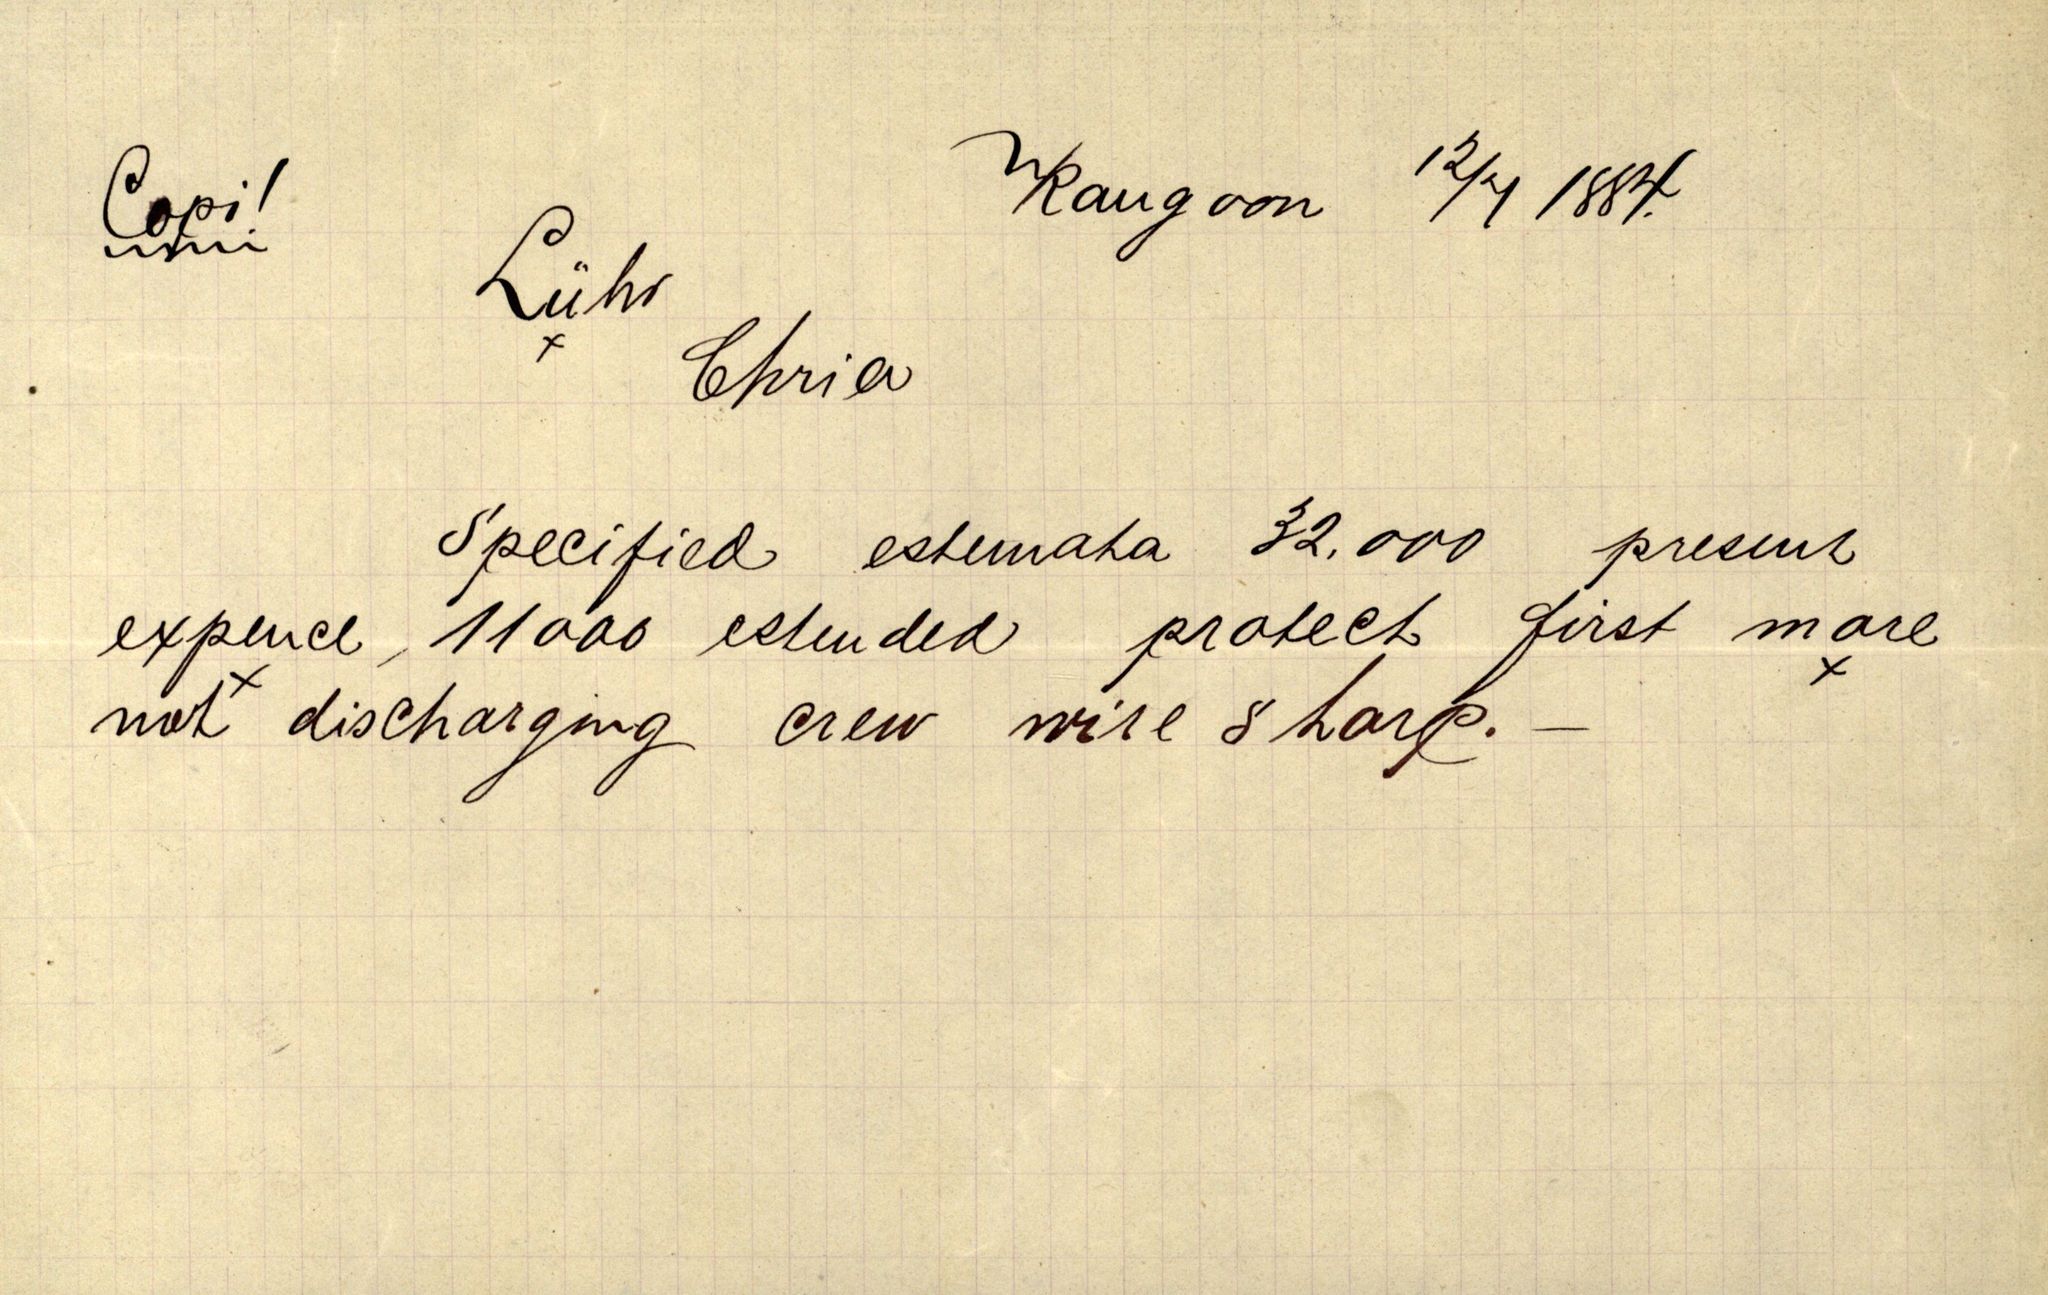 Copi!
Rangoon 12/4 1884.
Lühr
Chria
Specified estemata 32.000 present
expence, 11000 estended protect first more
not discharging crew wire sharp. —